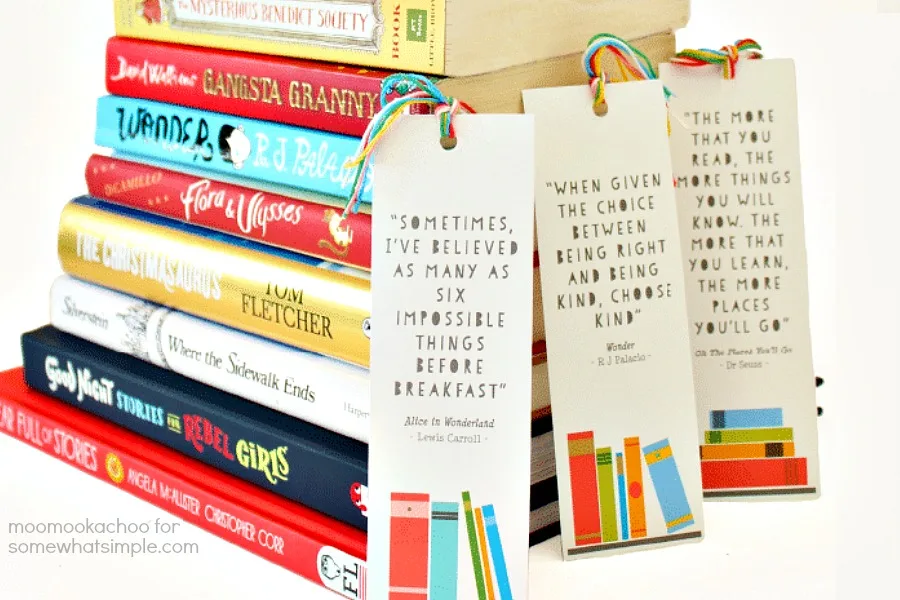 The MYSTERIOUS BENEDICT SOCIETY
BOOK
LITTLE, BROWN
David Walliams GANGSTA GRANNY
WONDER R J Palac
DICAMILLO Flora & Ulysses
THE CHRISTMASAURUS TOM
FLETCHER
Silverstein Where the Sidewalk Ends Harper
GOOD NIGHT STORIES FOR REBEL GIRLS
EAR FULL OF STORIES ANGELA MCALLISTER CHRISTOPHER CORR
FL
"SOMETIMES,
I'VE BELIEVED
AS MANY AS
SIX
IMPOSSIBLE
THINGS
BEFORE
BREAKFAST"
Alice in Wonderland
- Lewis Carroll -
"WHEN GIVEN
THE CHOICE
BETWEEN
BEING RIGHT
AND BEING
KIND, CHOOSE
KIND"
Wonder
- R J Palacio -
"THE MORE
THAT YOU
READ, THE
MORE THINGS
YOU WILL
KNOW. THE
MORE THAT
YOU LEARN,
THE MORE
PLACES
YOU'LL GO"
Oh The Places You'll Go
- Dr Seuss -
moomookachoo for
somewhatsimple.com